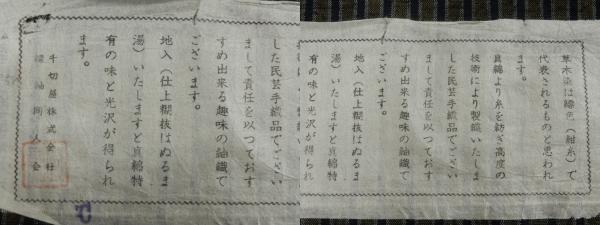 草木染は色(紺糸)で
代表されるものと思われ
ます。
真綿より糸を紡ぎ高度の
技術により製織いたしま
した民芸手織品でござい
まして責任を以つておす
すめ出来る趣味の紬織で
ございます。
地入(仕上糊抜はぬるま
湯)いたしますと真綿特
有の味と光沢が得られ
した民芸手織品でござい
まして責任を以つておす
すめ出来る趣味の紬織で
ございます。
地入(仕上糊抜はぬるま
湯)いたしますと真綿特
有の味と光沢が得られ
ます。
千切屋株式会社